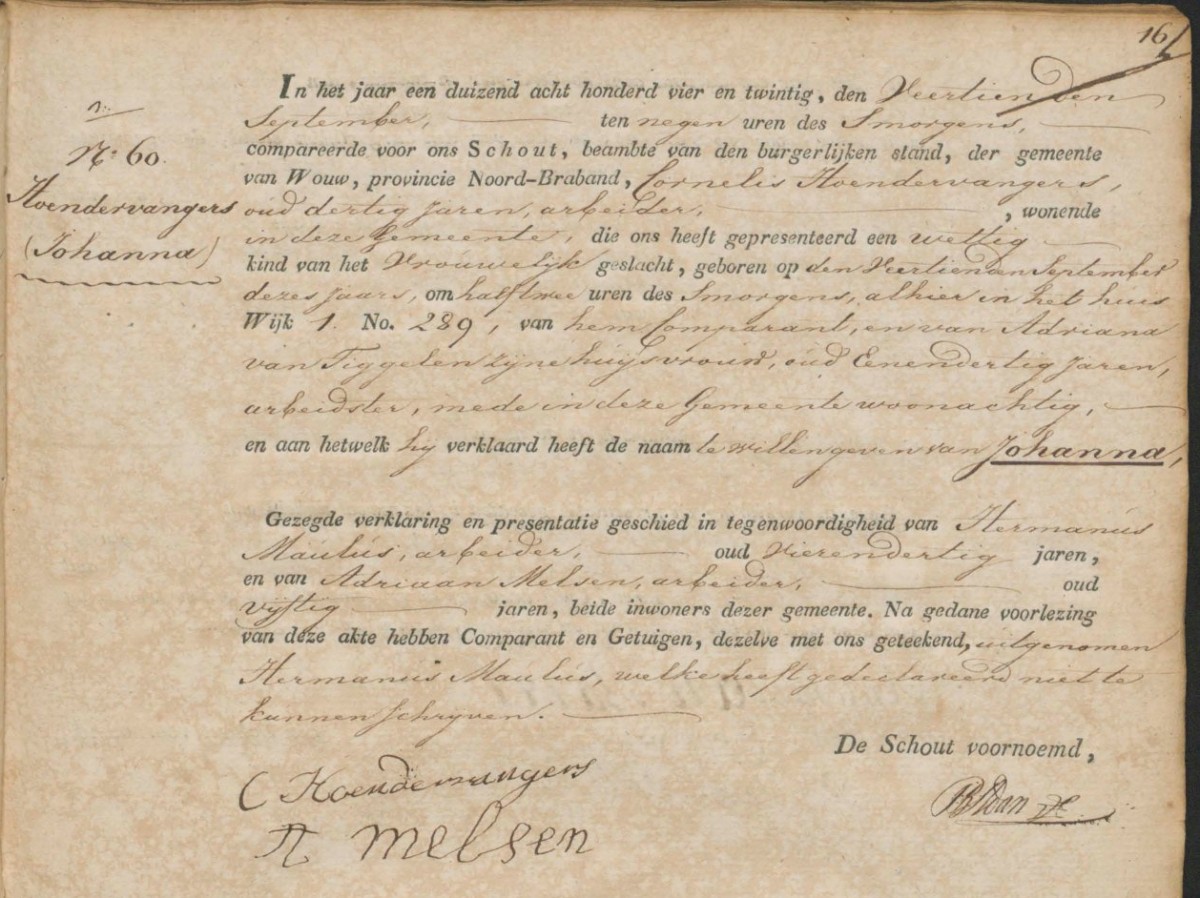 16
In het jaar een duizend acht honderd vier en twintig, den Veertienden
September, ten negen uren des Smorgens,
compareerde voor ons Schout, beambte van den burgerlijken stand, der gemeente
van Wouw, provincie Noord-Braband, Cornelis Hoendervangers,
oud dertig Jaren, arbeider, , wonende
in deze Gemeente, die ons heeft gepresenteerd een wettig
kind van het Vrouwelijk geslacht, geboren op den Veertienen September
dezes Jaars, om half twee uren des Smorgens, alhier in het huis
Wijk 1. No. 289, van hem Comparant, en van Adriana
van Tiggelen zyne huysvrouw, oud Eenendertig Jaren,
arbeidster, mede in deze Gemeente woonachtig,
en aan hetwelk hy verklaard heeft de naam te willen geven van Johanna,
No. 60.
Hoendervangers
(Johanna)
Gezegde verklaring en presentatie geschied in tegenwoordigheid van Hermanus
Maulus, arbeider, oud Vierendertig jaren,
en van Adriaan Melsen, arbeider, oud
vijftig jaren, beide inwoners dezer gemeente. Na gedane voorlezing
van deze akte hebben Comparant en Getuigen, dezelve met ons geteekend, uitgenomen
Hermanus Maulus, welke heeft gedeclareerd niet te
kunnen schryven.
De Schout voornoemd,
C Hoendervangers
A melsen